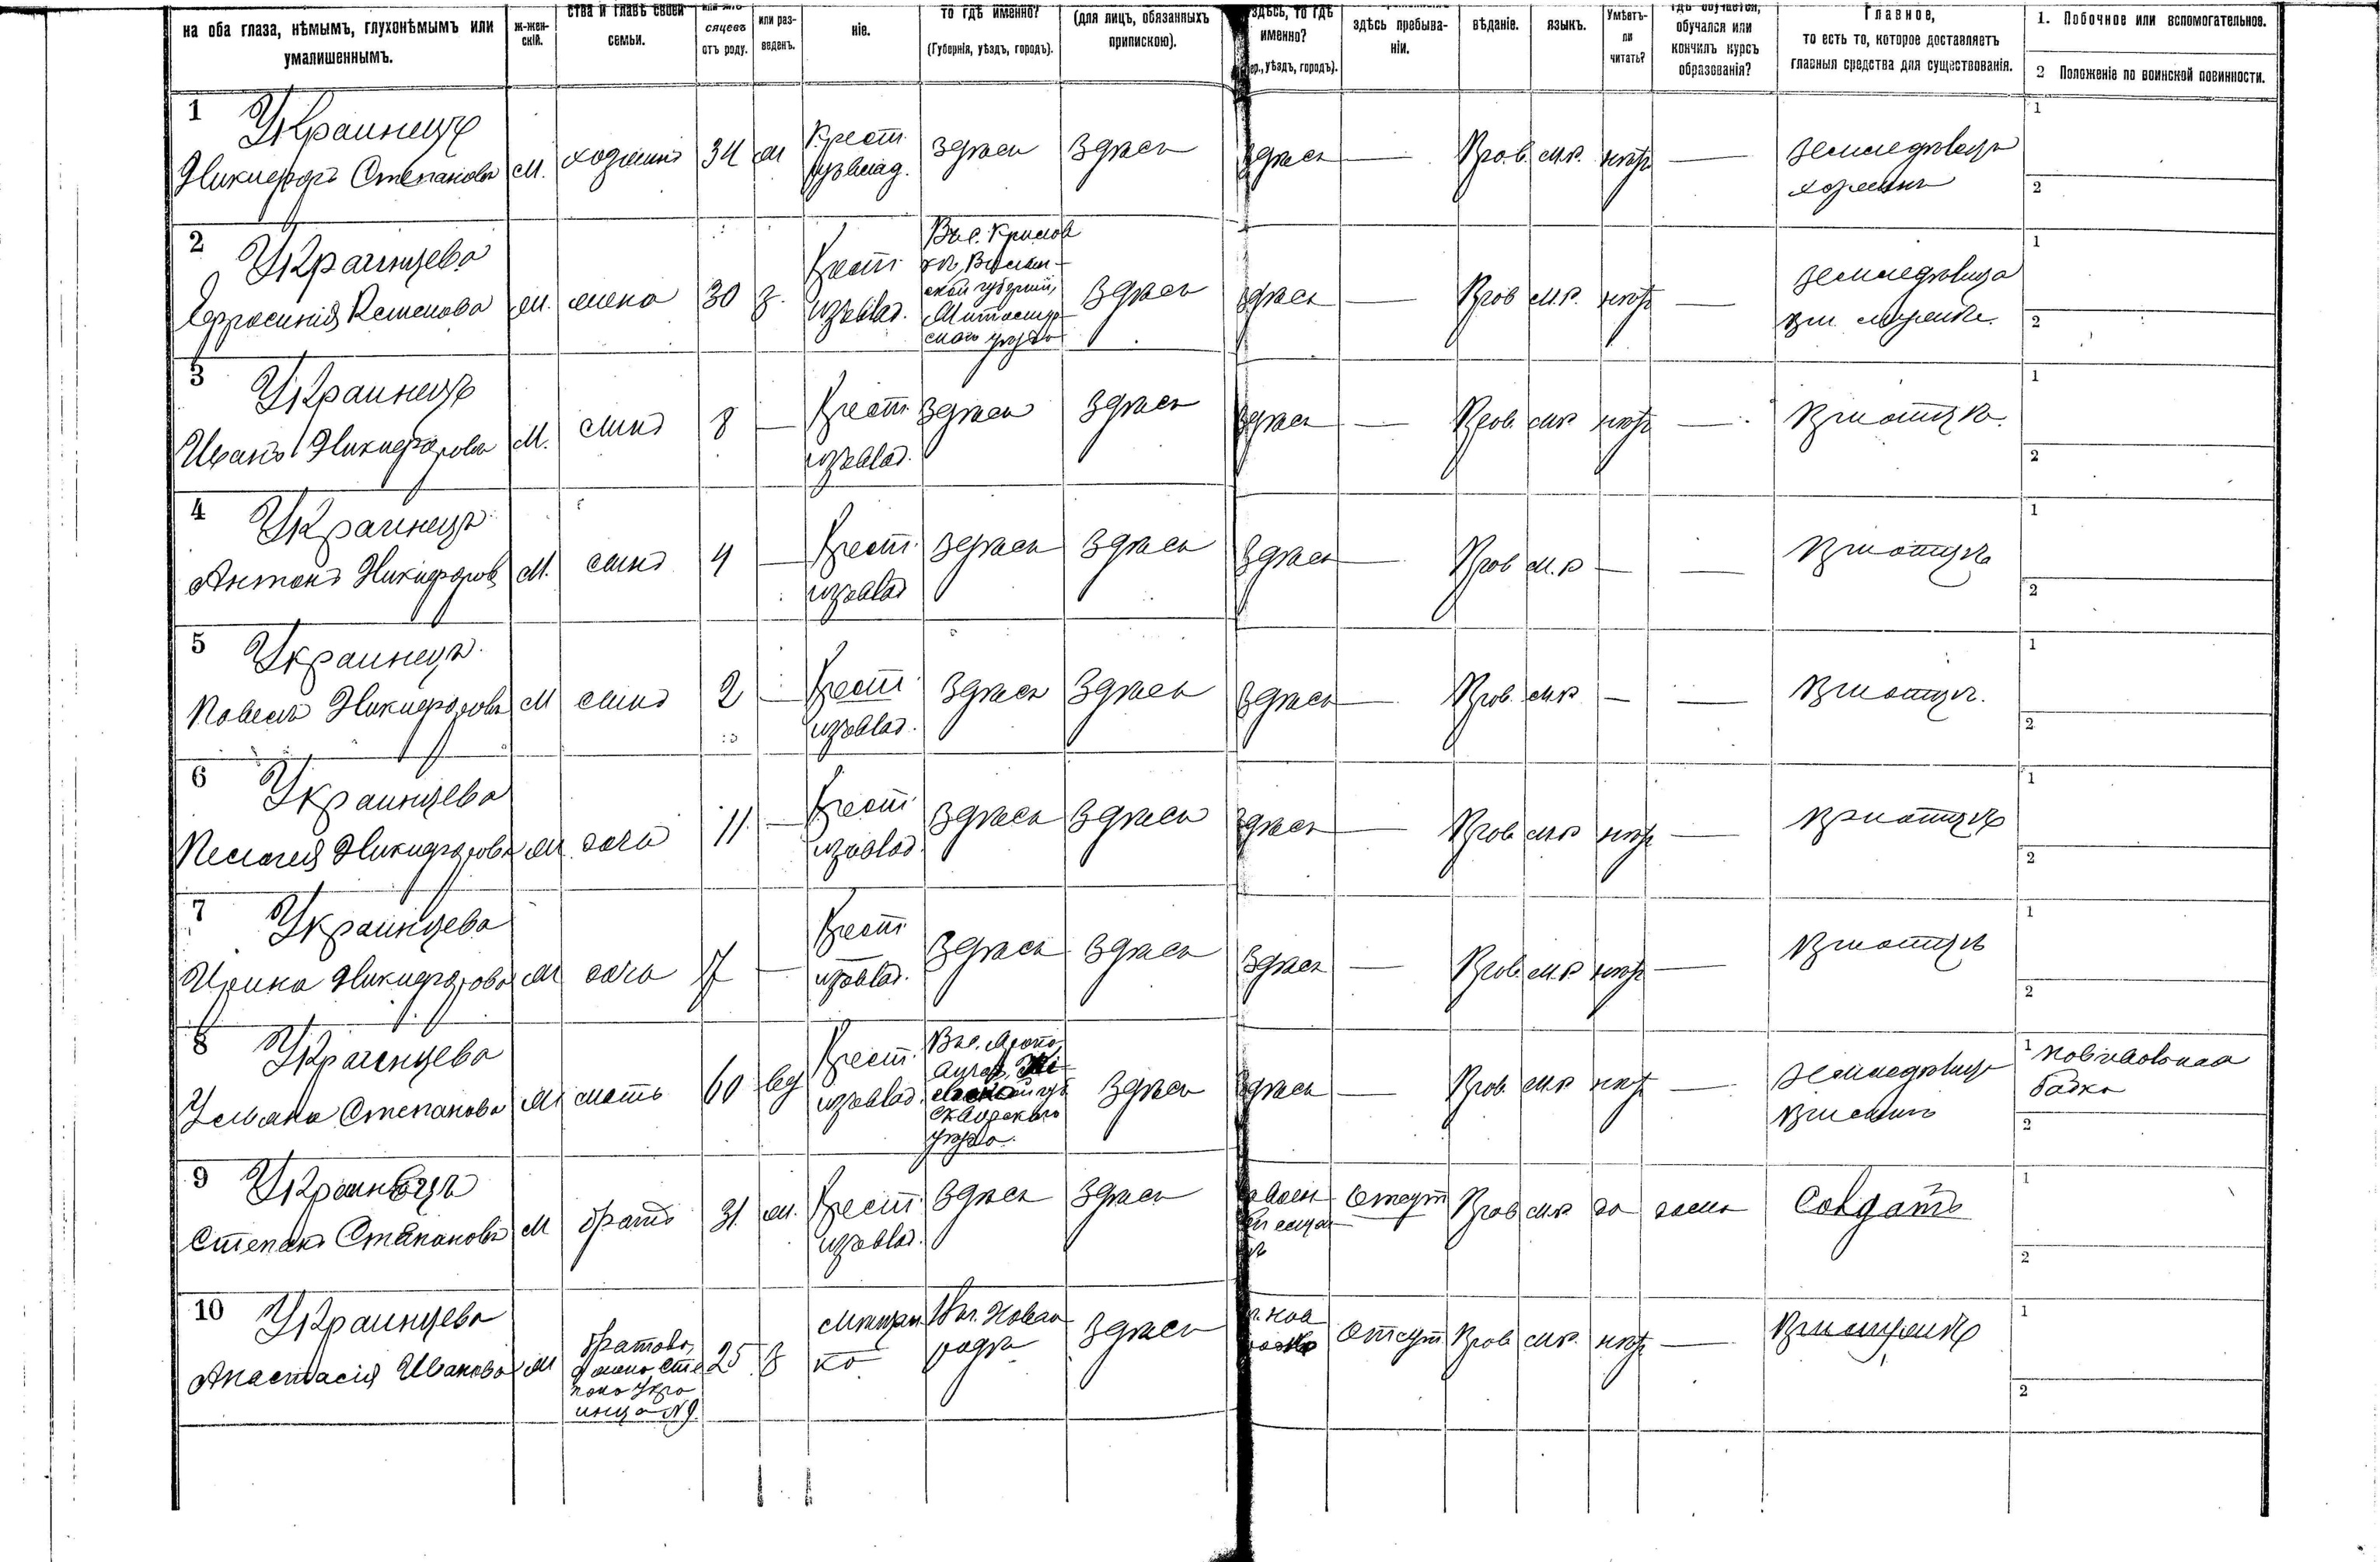 на оба глаза, нѣмымъ, глухонѣмымъ или умалишеннымъ.
ж-жен-скій.
ства и главѣ своей семьи.
сяцевъ отъ роду.
или раз-веденъ.
ніе.
то гдѣ именно? (Губернія, уѣздъ, городъ).
(для лицъ, обязанныхъ припискою).
здѣсь, то гдѣ именно? уѣздъ, городъ).
здѣсь пребыва-ніи.
вѣданіе.
языкъ.
Умѣетъ-ли читать?
гдѣ обучается, обучался или кончилъ курсъ образованія?
Главное, то есть то, которое доставляетъ главныя средства для существованія.
1. Побочное или вспомогательное.
2 Положеніе по воинской повинности.
1 Украинецъ
Никифоръ Степановъ м. хозяинъ 34 ж Крест. изъ влад. здѣсь здѣсь здѣсь — Прав. м.р. нѣтъ — земледѣлецъ хозяинъ
1
2
2 Украинцева
Ефросинія ж. жена 30 з. Крест. изъ влад. Въ с. ской губерніи, скаго уѣзда здѣсь здѣсь — Прав м.р. нѣтъ — земледѣлица
1
2
3 Украинецъ
Иванъ Никифоровъ м. сынъ 8 — Крест. изъ влад. здѣсь здѣсь здѣсь — Прав. м.р. нѣтъ — При отцѣ
1
2
4 Украинецъ
Антонъ Никифоровъ м. сынъ 4 — Крест. изъ влад здѣсь здѣсь здѣсь — Прав м.р — — При отцѣ
1
2
5 Украинецъ
Павелъ Никифоровъ м сынъ 2 — Крест. изъ влад. здѣсь здѣсь здѣсь — Прав. м.р — — При отцѣ.
1
2
6 Украинцева
Пелагея Никифорова ж. дочь 11. — Крест. изъ влад. здѣсь здѣсь здѣсь — Прав м.р нѣтъ — При отцѣ
1
2
7 Украинцева
Ирина Никифорова ж дочь 7 — Крест. изъ влад. здѣсь здѣсь здѣсь — Прав. м.р нѣтъ — При отцѣ
1
2
8 Украинцева
Ульяна Степанова ж мать 60 вд Крест. изъ влад. Въ с. Сквирскаго уѣзда. здѣсь здѣсь — Прав. м.р нѣтъ — Земледѣлица При сынѣ
1 повивальная бабка
2
9 Украинецъ
Степанъ Степановъ м братъ 31. ж. Крест. изъ влад. здѣсь здѣсь Отсут Прав м.р да дома Солдатъ
1
2
10 Украинцева
Анастасія Иванова ж братова жена Степана Украинца № 9. 25 з Мѣщанка здѣсь Отсут. Прав м.р. нѣтъ —
1
2